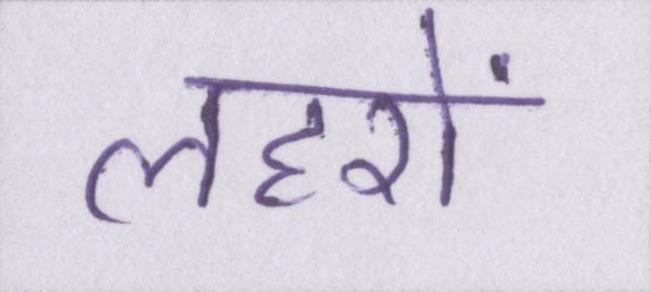 लहरों